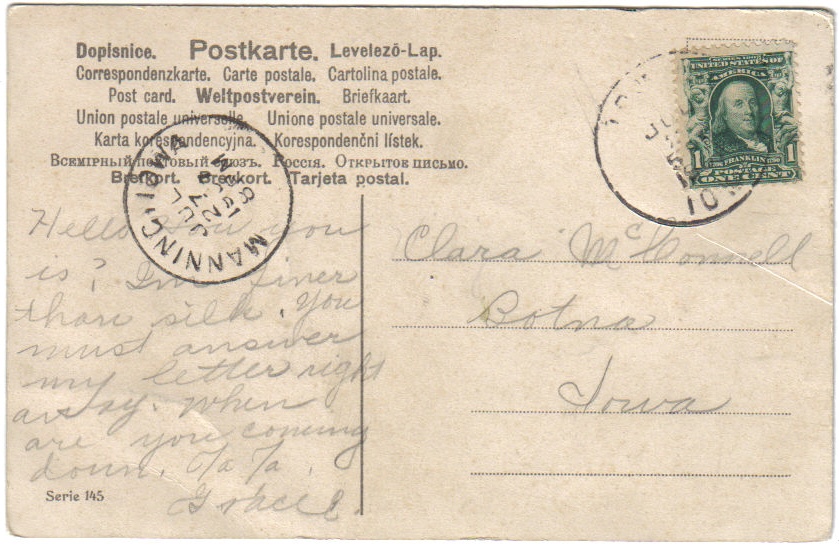 Dopisnice. Postkarte. Levelező-Lap.
Correspondenzkarte. Carte postale. Cartolina postale.
Post card. Weltpostverein. Briefkaart.
Union postale universelle. Unione postale universale.
Karta korespondencyjna. Korespondenční lístek.
Всемірный почтовый союзъ. Россія. Открытое письмо.
Brefkort. Brevkort. Tarjeta postal.
MANNING, IOWA
JUL
27
8 AM
SERIES 1902
UNITED STATES OF
AMERICA
1706 FRANKLIN 1790
1 POSTAGE 1
ONE CENT
IOWA
Hello you
is? I'm finer
than silk. You
must answer
my letter right
away. When
are you coming
down. Ta Ta.
Grace
Serie 145
Clara McConnell
Botna
Iowa